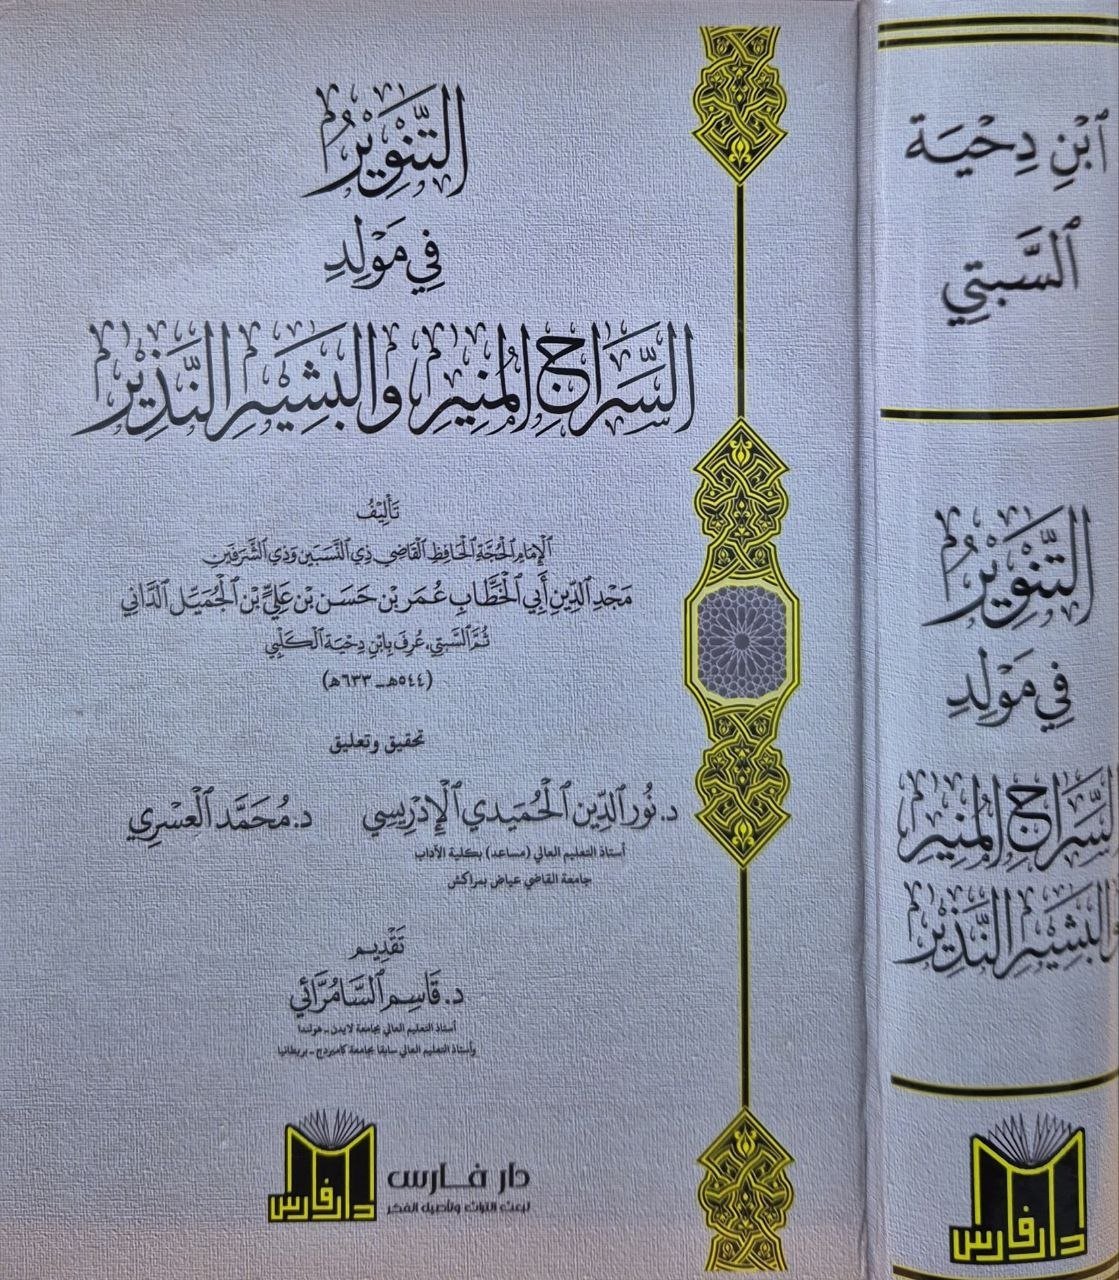 التَّنْوِيْرُ
فِي مَوْلِدِ
السِّرَاجِ الْمُنِيْرِ وَالْبَشِيْرِ النَّذِيْرِ
تَأْلِيْفُ
الْإِمَامِ الْحُجَّةِ الْحَافِظِ الْقَاضِي ذِي النَّسَبَيْنِ وَذِي الشَّرَفَيْنِ
مَجْدِ الدِّينِ أَبِي الْخَطَّابِ عُمَرَ بْنِ حَسَنِ بْنِ عَلِيِّ بْنِ الْجُمَيِّلِ الدَّانِي
ثُمَّ السَّبْتِي، عُرِفَ بِابْنِ دِحْيَةَ الْكَلْبِيّ
(٥٤٤هـ ـ ٦٣٣هـ)
تحقيق وتعليق
د. نُور الدِّين الْحُمَيْدي الْإِدْرِيسِي
د. مُحَمَّد الْعَسْرِي
أستاذ التعليم العالي (مساعد) بكلية الآداب
جامعة القاضي عياض بمراكش
تَقْدِيم
د. قَاسِم السَّامُرَّائِي
أستاذ التعليم العالي بجامعة لايدن ـ هولندا
وأستاذ التعليم العالي سابقا بجامعة كامبردج ـ بريطانيا
دار فارس
دار فارس
لبعث التراث وتأصيل الفكر
ابْنِ دِحْيَة
السَّبتِي
التَّنْوِيْرُ
فِي مَوْلِدِ
السِّرَاجِ الْمُنِيْرِ
وَالْبَشِيْرِ النَّذِيْرِ
دار فارس